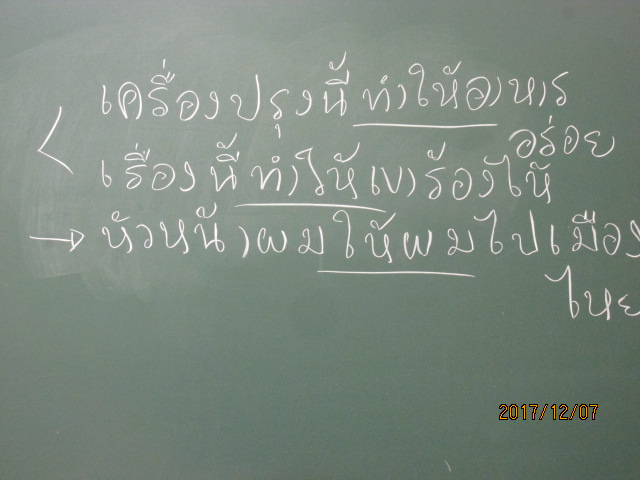 เครื่องปรุงนี้ทำให้อาหาร
อร่อย
เรื่องนี้ทำให้เขาร้องไห้
หัวหน้าผมให้ผมไปเมือง
ไทย
2017/12/07